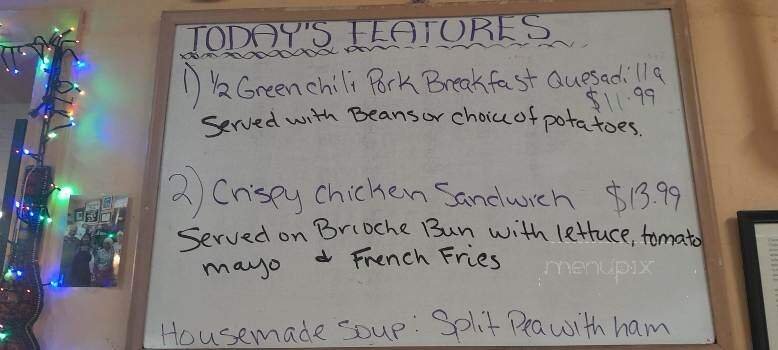 TODAY'S FEATURES
1) 1/2 Green chili Pork Breakfast Quesadilla
$11.99
Served with Beans or choice of potatoes.
2) Crispy Chicken Sandwich $13.99
Served on Brioche Bun with lettuce, tomato
mayo & French Fries
menupix
Housemade Soup: Split Pea with ham